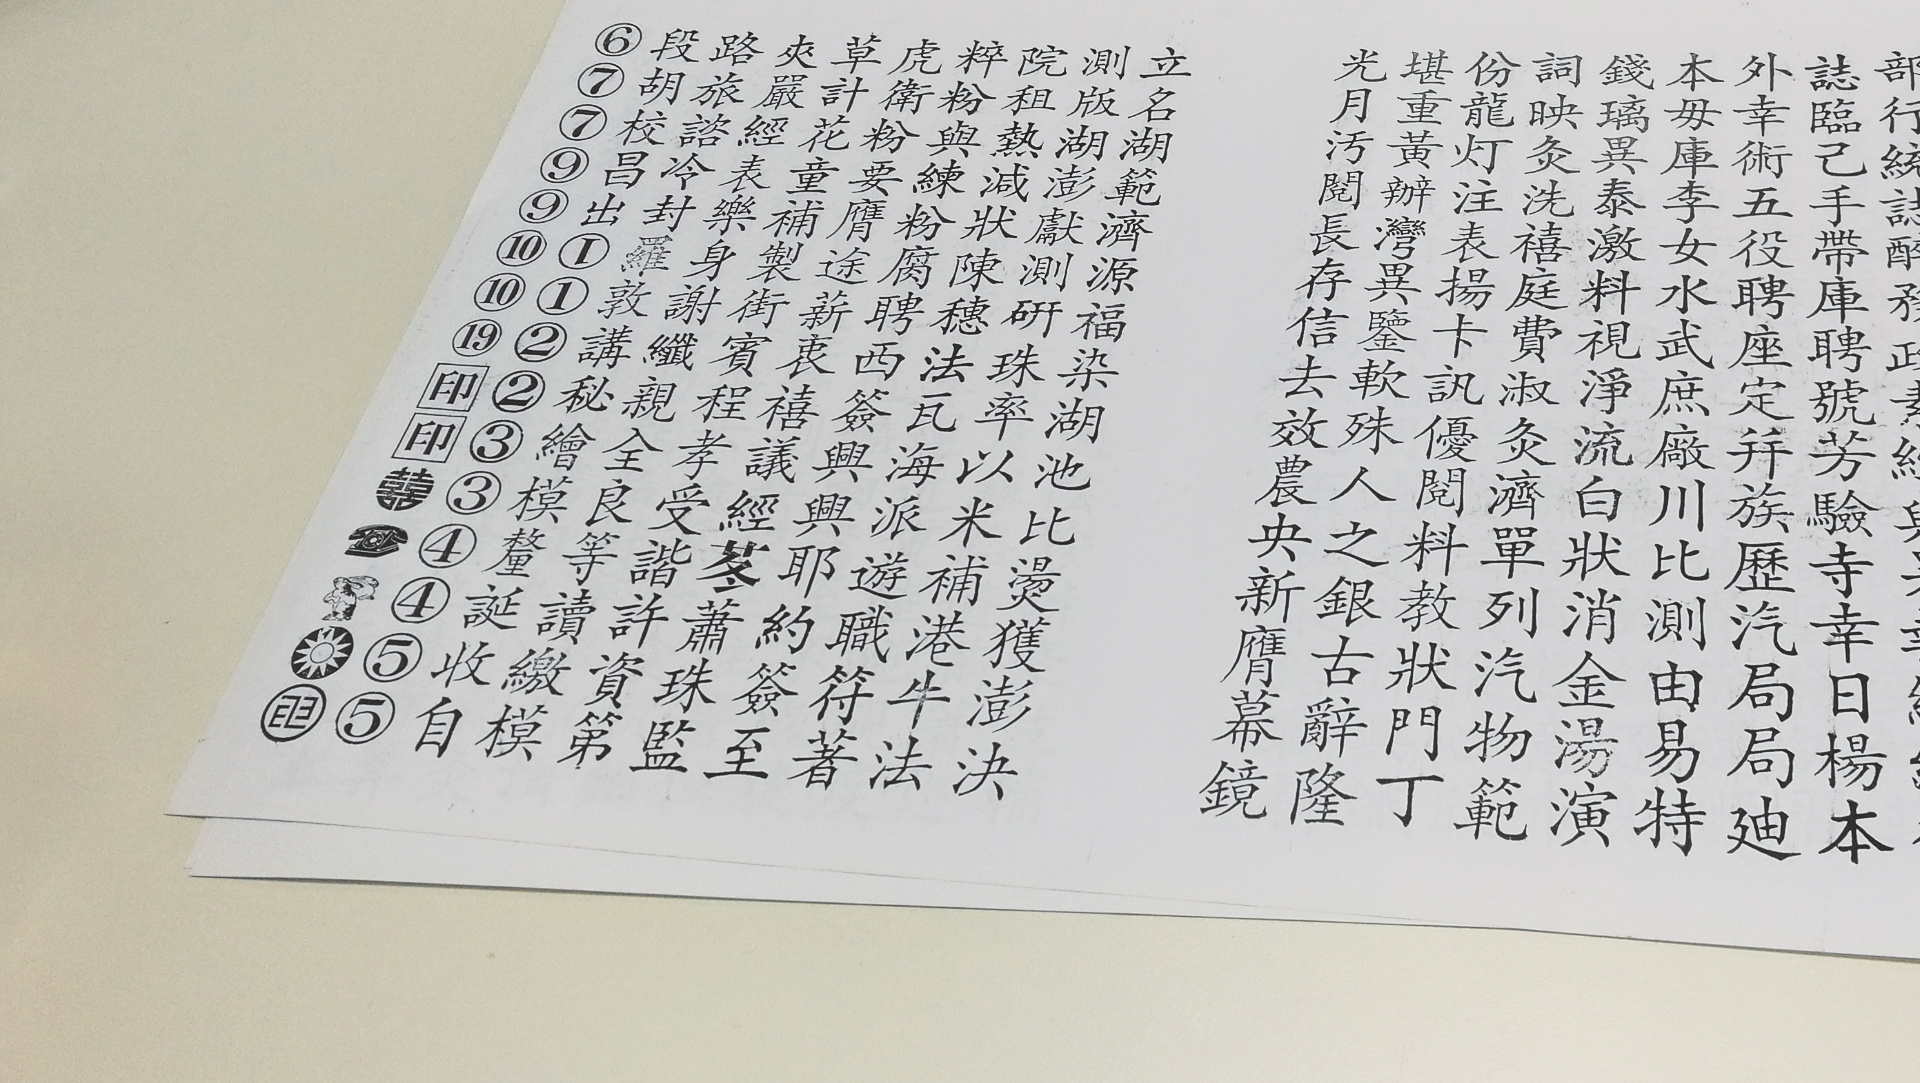 ⑥ 段 路 夾 草 虎 粹 院 測 立
⑦ 胡 旅 嚴 計 衛 粉 租 版 名
⑦ 校 諮 經 花 粉 與 熱 湖 湖
⑨ 昌 冷 表 童 要 練 減 澎 範
⑨ 出 封 樂 補 膺 粉 狀 獻 濟
⑩ ① 羅 身 製 途 腐 陳 測 源
⑩ ① 敦 謝 街 薪 聘 穗 研 福
⑲ ② 講 纖 賓 衷 西 法 珠 染
印 ② 秘 親 程 禧 簽 瓦 率 湖
印 ③ 繪 全 孝 議 興 海 以 池
囍 ③ 模 良 受 經 興 派 米 比
④ 釐 等 諧 苳 耶 遊 補 燙
④ 誕 讀 許 蕭 約 職 港 獲
⑤ 收 繳 資 珠 簽 符 牛 澎
⑤ 自 模 第 監 至 著 法 決
光 堪 份 詞 錢 本 外 誌 部
月 重 龍 映 璃 毋 幸 臨 行
汚 黃 灯 灸 異 庫 術 己 統
閱 辦 注 洗 泰 李 五 手 誌
長 灣 表 禧 激 女 役 帶
存 異 揚 庭 料 水 聘 庫 務
信 鑒 卡 費 視 武 座 聘
去 軟 訊 淑 淨 庶 定 號
效 殊 優 灸 流 廠 幷 芳
農 人 閱 濟 白 川 族 驗
央 之 料 單 狀 比 歷 寺
新 銀 教 列 消 測 汽 幸
膺 古 狀 汽 金 由 局 日
幕 辭 門 物 湯 易 局 楊
鏡 隆 丁 範 演 特 廸 本